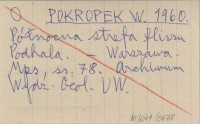 POKROPEK W. 1960.
Północna strefa fliszu
Podhala. — Warszawa.
Mps, ss. 78. Archiwum
Wydz. Geol. UW.